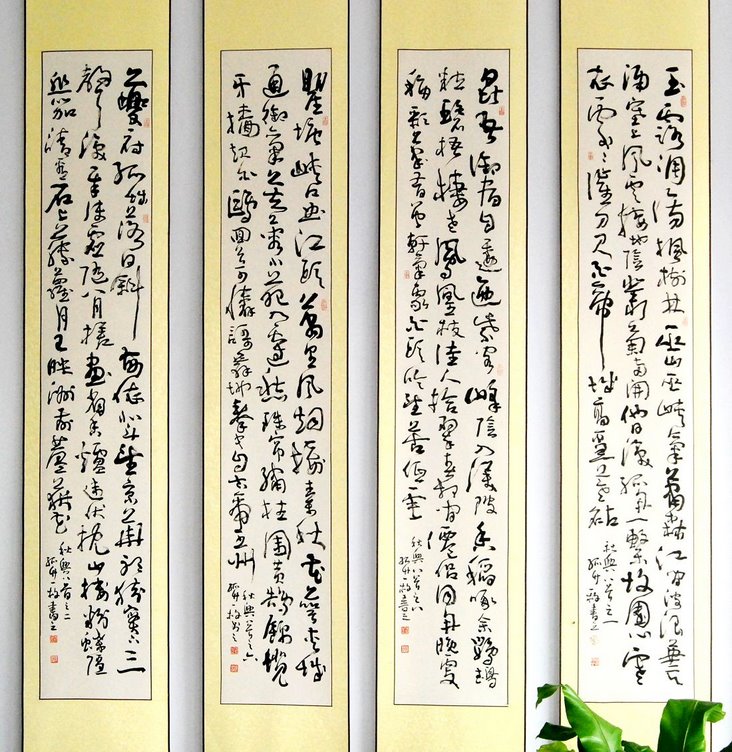 玉露凋傷楓樹林巫山巫峽氣蕭森江間波浪兼天
湧塞上風雲接地陰叢菊兩開他日淚孤舟一繫故園心寒
衣處處催刀尺白帝城高急暮砧
秋興八首之一
昆吾御宿自逶迤紫閣峰陰入渼陂香稻啄余鸚鵡
粒碧梧棲老鳳凰枝佳人拾翠春相問僊侶同舟晚更
移彩筆昔曾幹氣象白頭吟望苦低垂
秋興八首之八
瞿塘峽口曲江頭萬里風煙接素秋花萼夾城
通御氣芙蓉小苑入邊愁珠簾繡柱圍黃鵠錦纜
牙檣起白鷗回首可憐謌舞地秦中自古帝王州
秋興八首之六
夔府孤城落日斜每依北斗望京華聽猿實下三
聲淚奉使虛隨八月槎畫省香爐違伏枕山樓粉堞隱
悲笳請看石上藤蘿月已映洲前蘆荻花
秋興八首之二